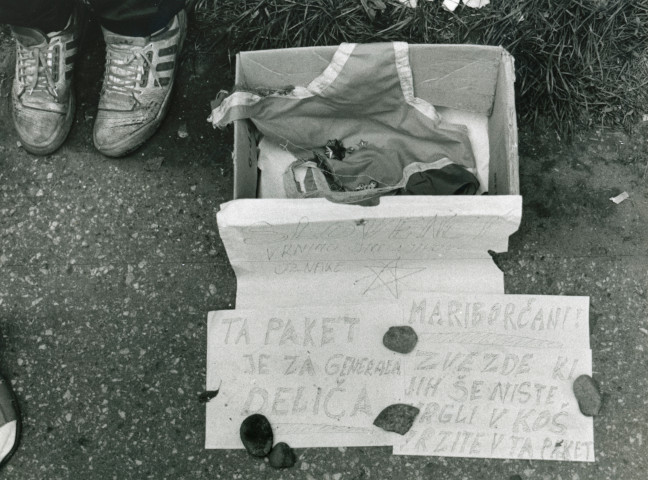 VRNIMO
TA PAKET
JE ZA GENERALA
DELIČA
MARIBORČANI!
ZVEZDE KI
JIH ŠE NISTE
VRGLI V KOŠ
VRZITE V TA PAKET